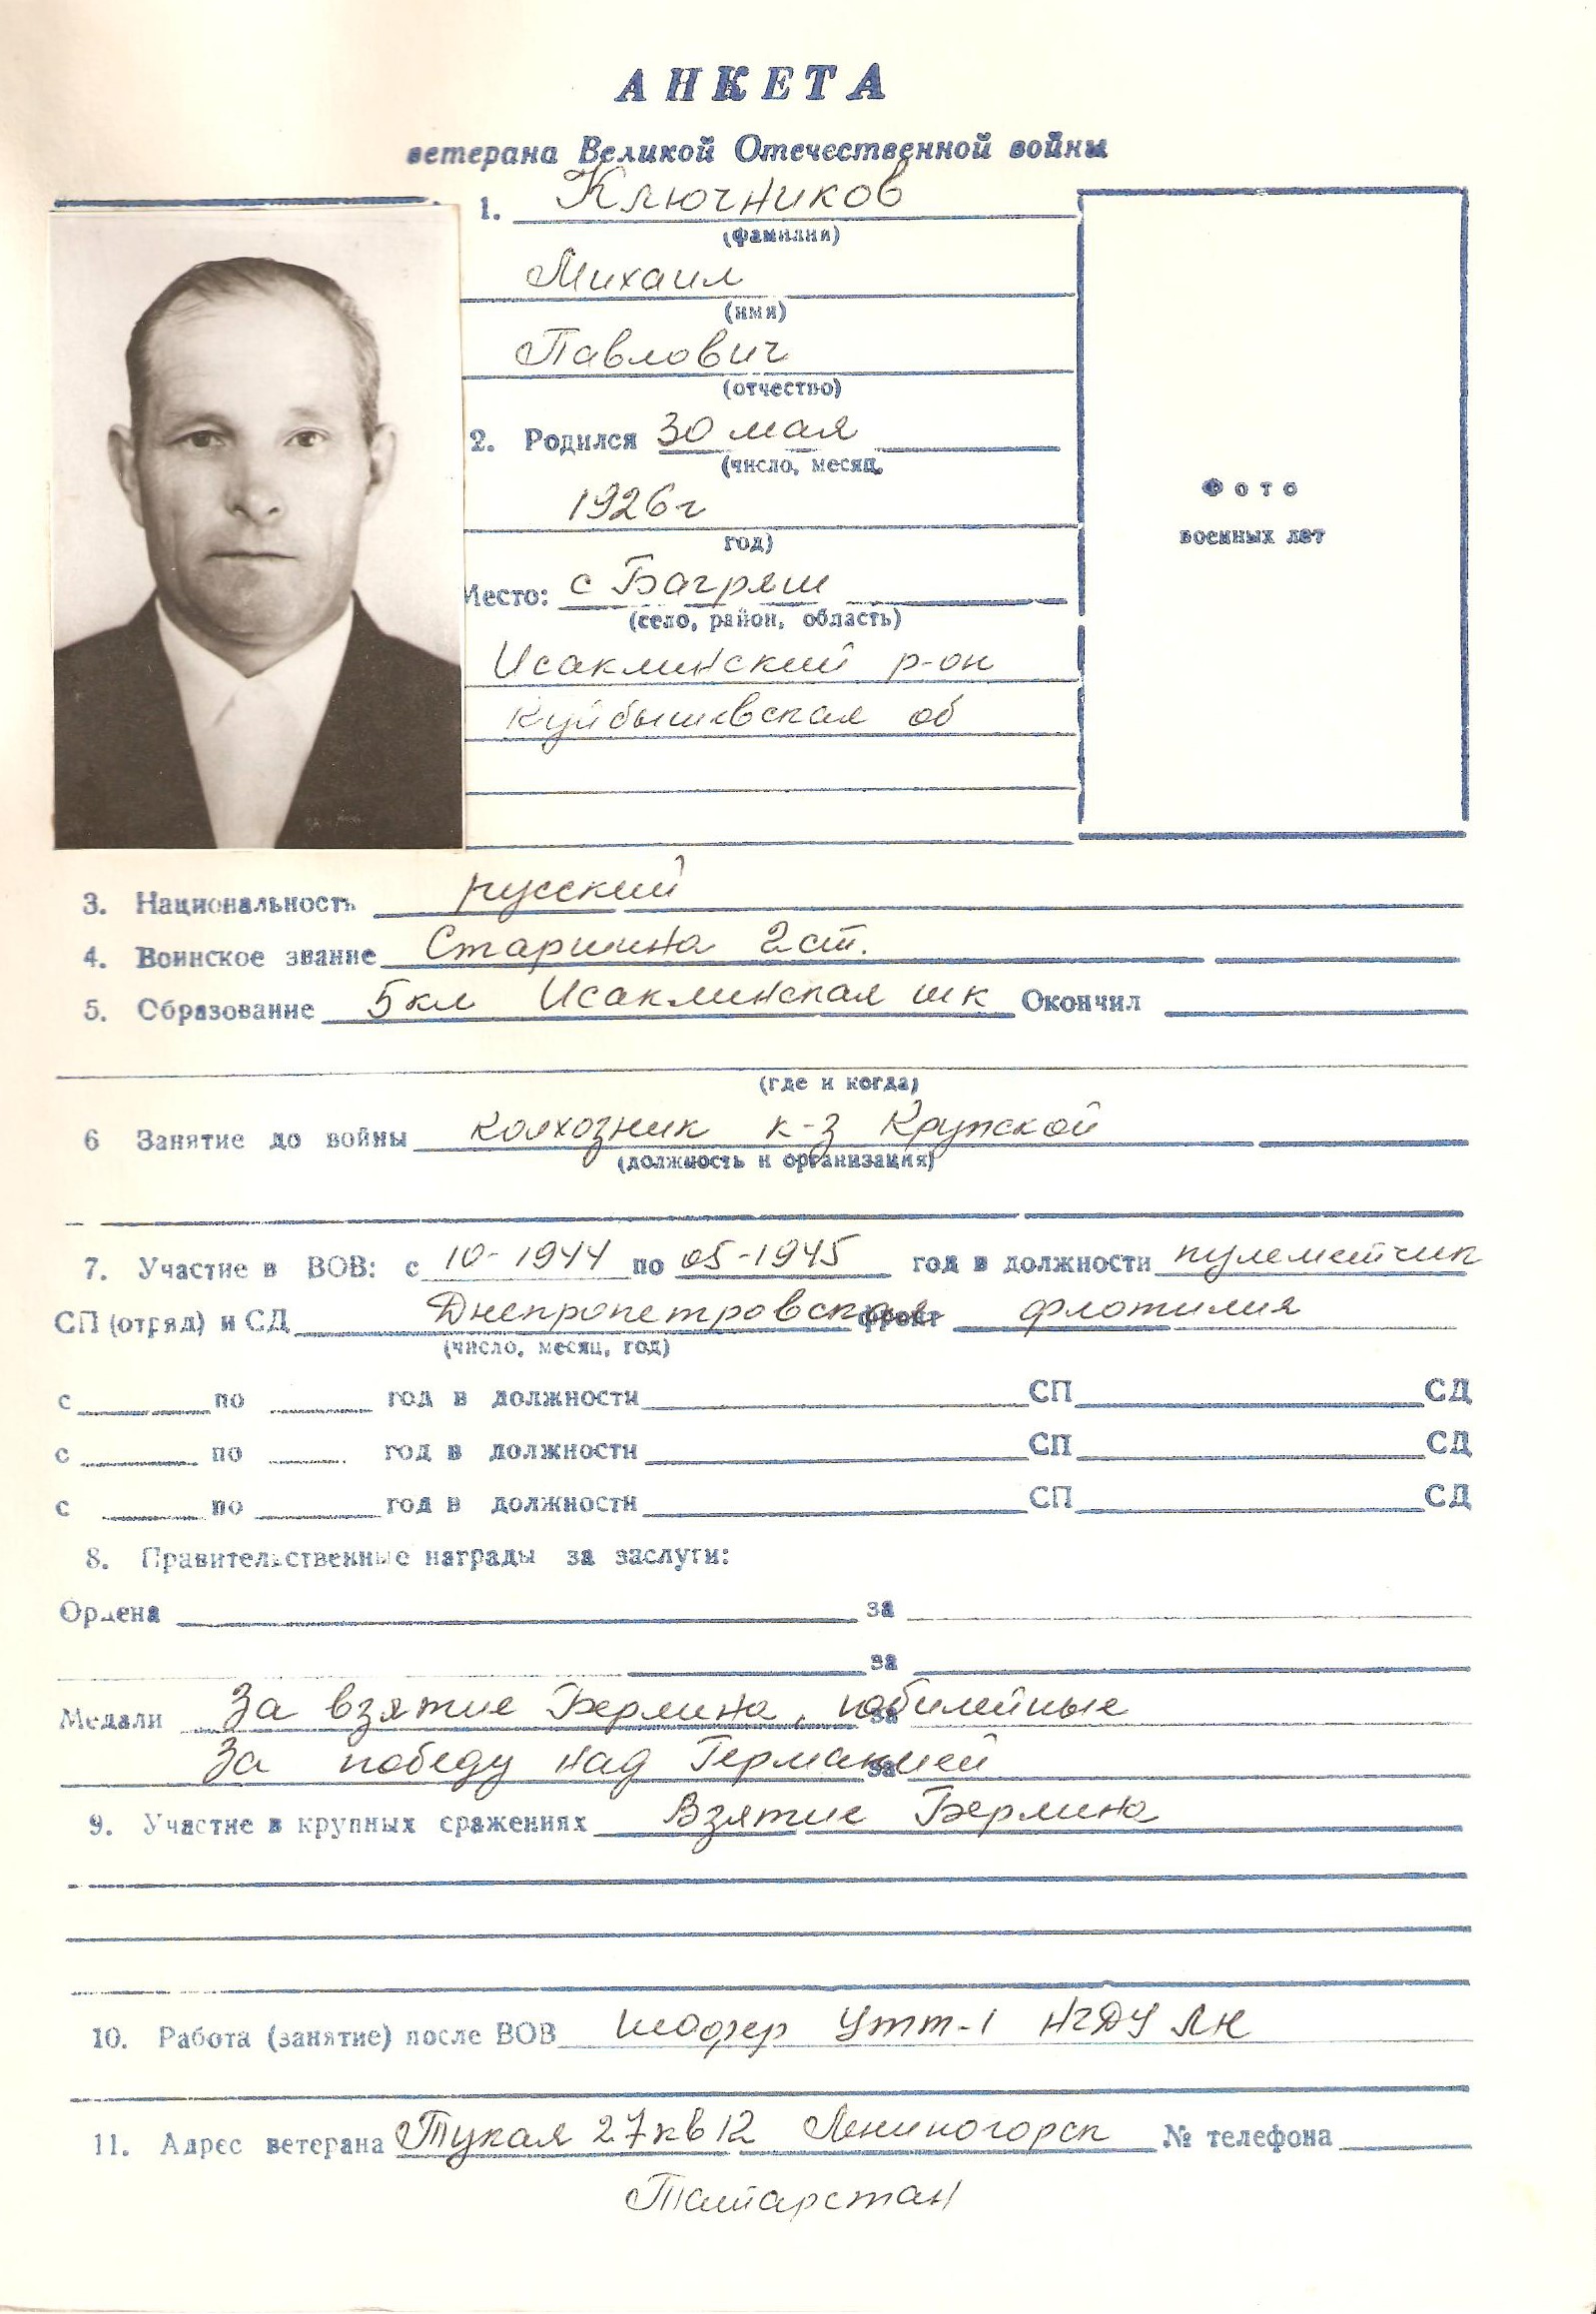 АНКЕТА
ветерана Великой Отечественной войны
1. Ключников
(фамилия)
Михаил
(имя)
Павлович
(отчество)
2. Родился 30 мая
(число, месяц,
1926 г
год)
Место: с Багряш
(село, район, область)
Исаклинский р-он
Куйбышевская об
Фото
военных лет
3. Национальность русский
4. Воинское звание Старшина 2 ст.
5. Образование 5 кл Исаклинская шк Окончил
(где и когда)
6 Занятие до войны колхозник к-з Крупской
(должность и организация)
7. Участие в ВОВ: с 10-1944 по 05-1945 год в должности пулеметчик
СП (отряд) и СД Днепропетровская фронт флотилия
(число, месяц, год)
с по год в должности СП СД
с по год в должности СП СД
с по год в должности СП СД
8. Правительственные награды за заслуги:
Ордена за
за
Медали За взятие Берлина, юбилейные за
За победу над Германией за
9. Участие в крупных сражениях Взятие Берлина
10. Работа (занятие) после ВОВ шофер УТТ-1 НГДУ ЛН
11. Адрес ветерана Тукая 27 кв 12 Лениногорск № телефона
Татарстан